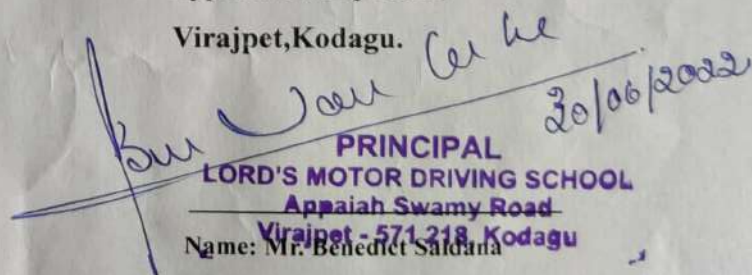 Virajpet,Kodagu.
30/06/2022
PRINCIPAL
LORD'S MOTOR DRIVING SCHOOL
Appaiah Swamy Road
Virajpet - 571 218, Kodagu
Name: Mr. Benedict Saldana